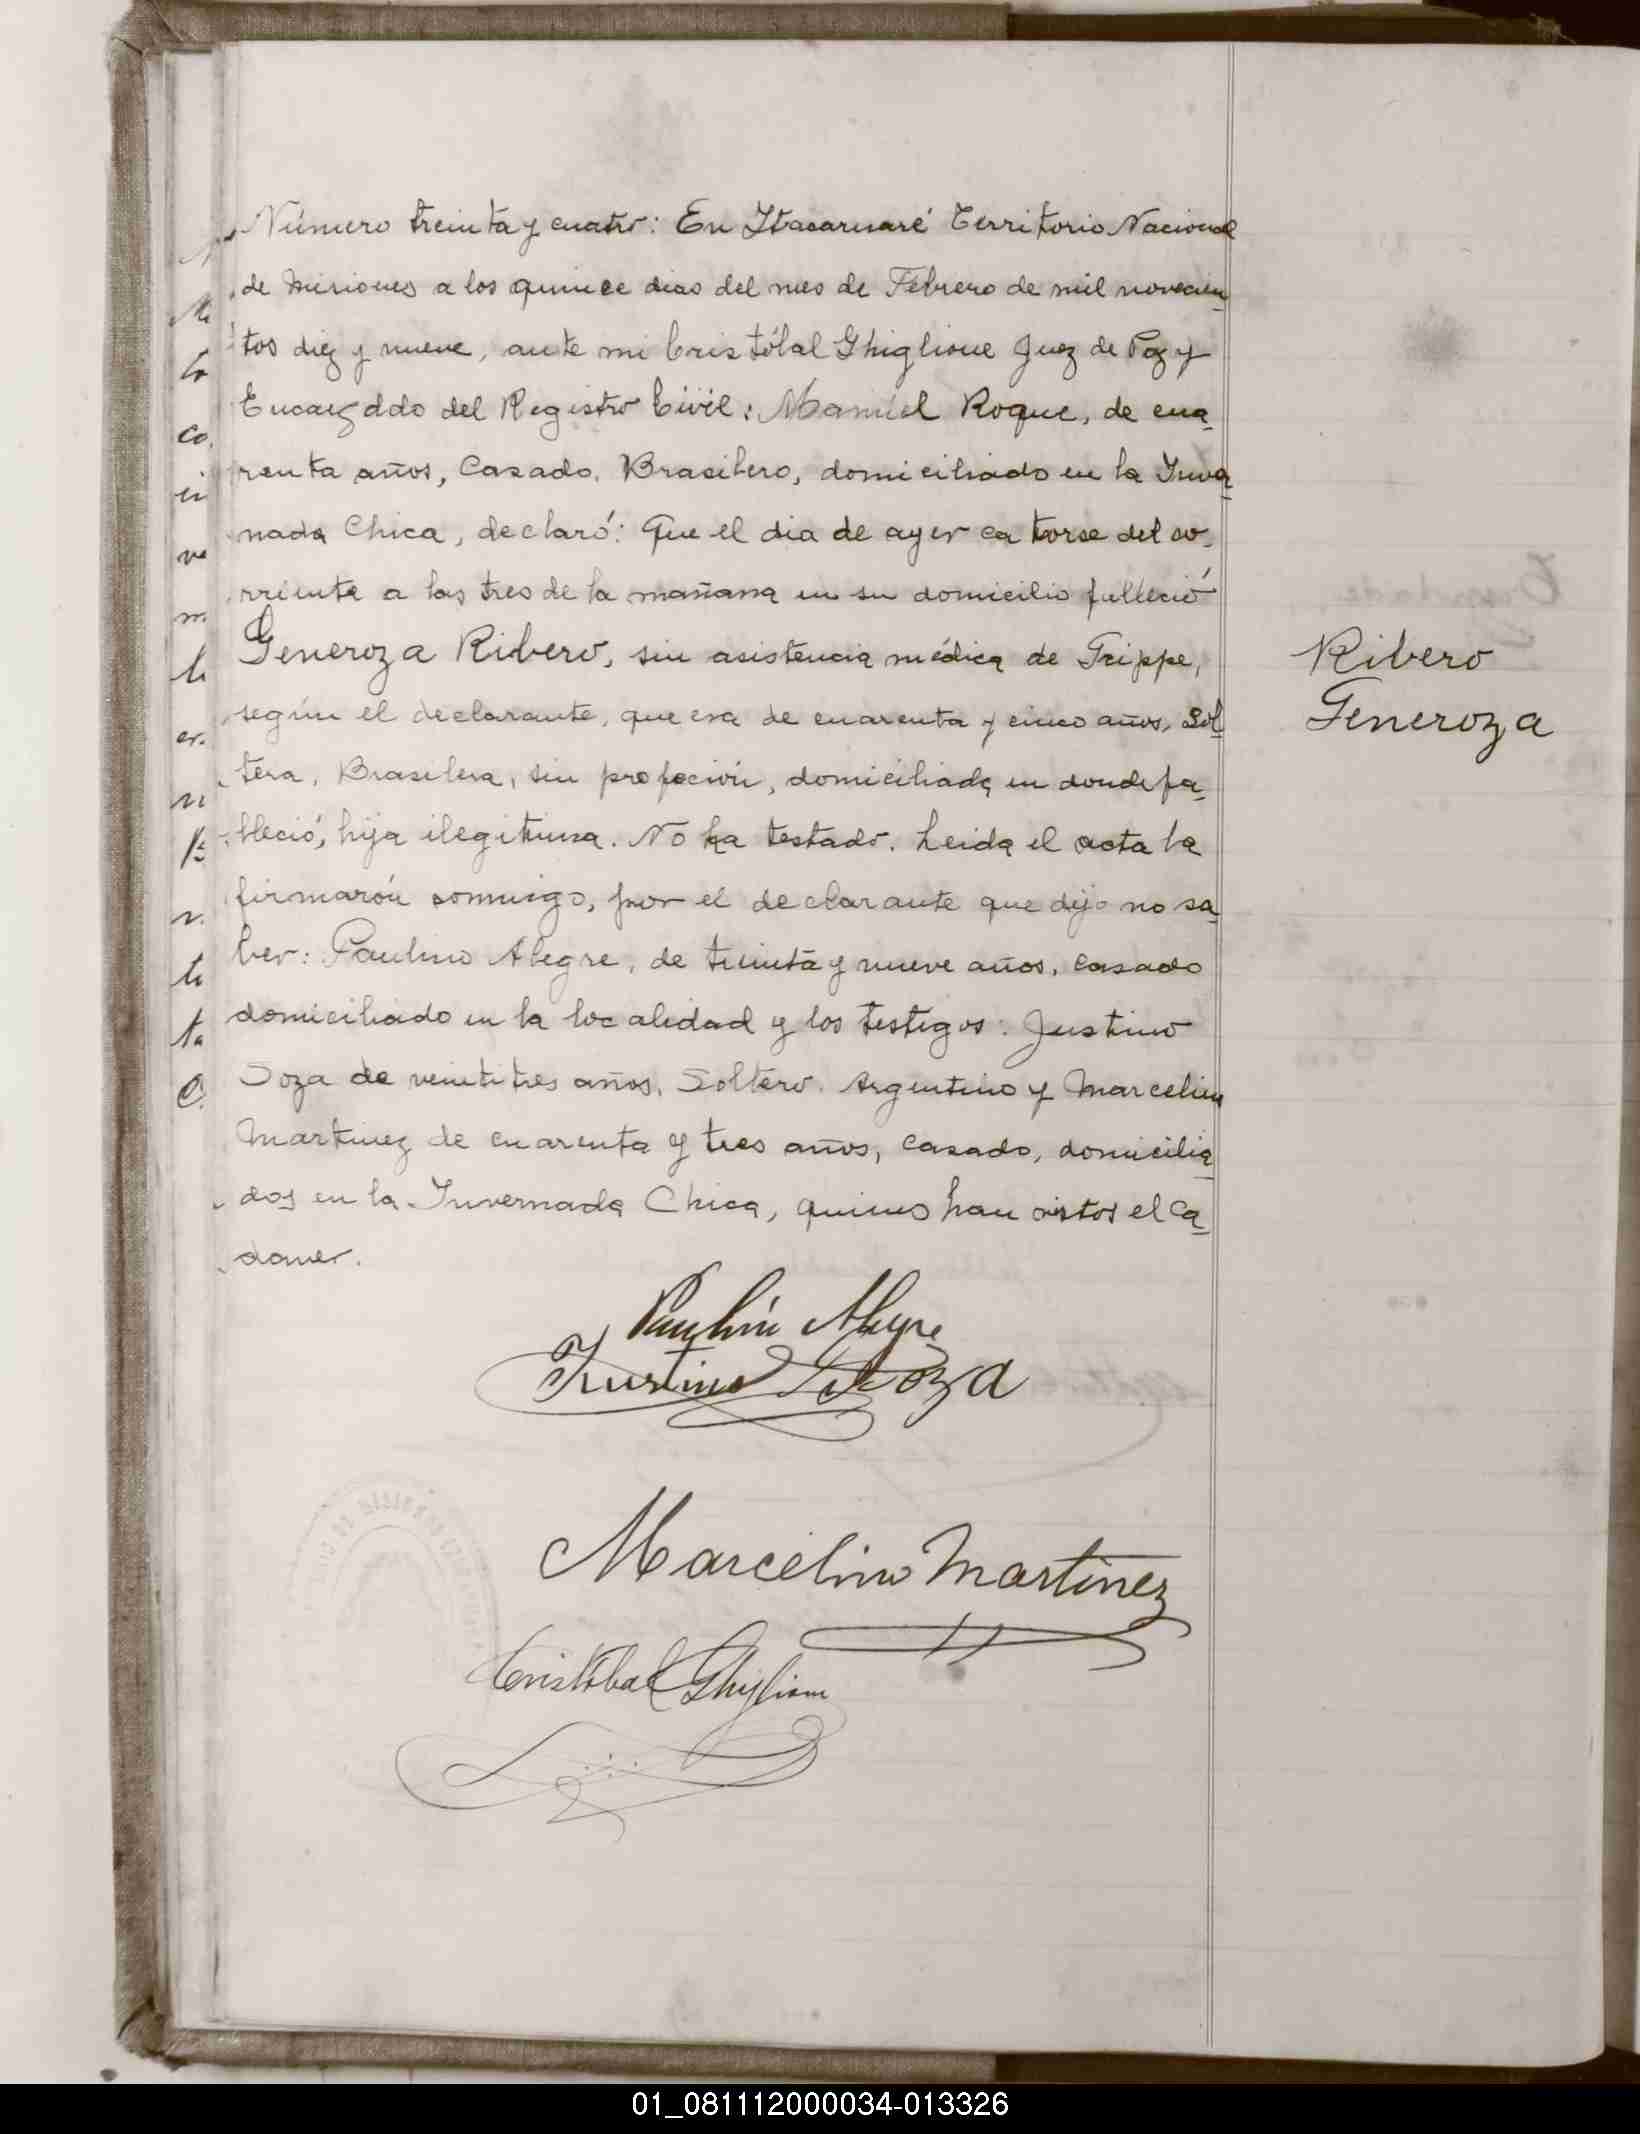 Número treinta y cuatro: En Itacaruaré Territorio Nacional
de Misiones a los quince dias del mes de Febrero de mil novecien
tos diez y nueve, ante mi Cristóbal Ghiglione Juez de Paz y
Encargado del Registro Civil: Manuel Roque, de cua
renta años, Casado, Brasilero, domiciliado en la Inver
nada Chica, declaró: Que el dia de ayer catorse del co
rriente a las tres de la mañana en su domicilio falleció
Generoza Ribero, sin asistencia médica de Grippe,
según el declarante, que era de cuarenta y cinco años, Sol
tera, Brasilera, sin profeción, domiciliada en donde fa
lleció, hija ilegitima. No ha testado. Leida el acta la
firmarón conmigo, por el declarante que dijo no sa
ber: Paulino Alegre, de treinta y nueve años, casado
domiciliado en la localidad y los testigos: Justino
Soza de veintitres años, Soltero, Argentino y Marcelino
Martinez de cuarenta y tres años, casado, domicilia
dos en la Invernada Chica, quienes han vistos el Ca
daver.
Ribero
Generoza
Paulino Alegre
Justino Soza
Marcelino Martinez
Cristóbal Ghiglione
01_081112000034-013326